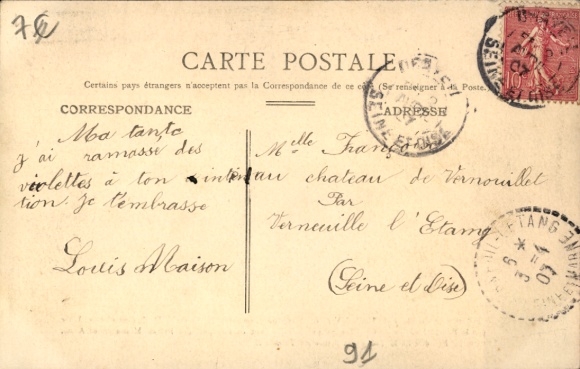 7€
CARTE POSTALE
Certains pays étrangers n'acceptent pas la Correspondance de ce côté (Se renseigner à la Poste.)
CORRESPONDANCE
Ma tante
j'ai ramassé des
violettes à ton inten
tion. Je t'embrasse
Louis Maison
ADRESSE
Melle François
au chateau de Vernouillet
Par
Verneuille l'Etang
(Seine et Oise)
SEINE ET OISE
SEINE ET OISE
L'ETANG
91